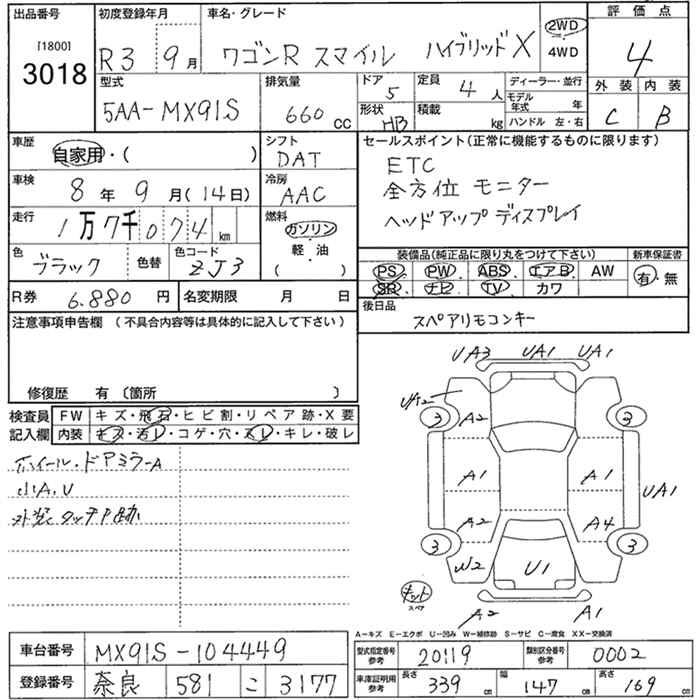 出品番号 初度登録年月 車名・グレード 評価点
[1800]
3018
R3 9月 ワゴンR スマイル ハイブリッドX 2WD 4WD 4
型式 排気量 ドア 定員 ディーラー・並行 外装 内装
5AA-MX91S 660cc 5 4人 モデル年式 年 C B
形状 積載 ハンドル 左・右
HB kg
車歴 シフト セールスポイント(正常に機能するものに限ります)
自家用・( ) DAT ETC
車検 冷房 全方位 モニター
8年 9月(14日) AAC ヘッドアップディスプレイ
走行 燃料
1万7千074km ガソリン 軽・油 ( )
色 色替 色コード 装備品(純正品に限り丸をつけて下さい) 新車保証書
ブラック ZJ3 PS・PW・ABS・エアB・AW 有・無
SR・ナビ・TV・カワ
R券 6.880円 名変期限 月 日 後日品
注意事項申告欄 (不具合内容等は具体的に記入して下さい) スペアリモコンキー
修復歴 有〔箇所 〕
検査員 FW キズ・飛石・ヒビ割・リペア跡・X要
記入欄 内装 キズ・汚レ・コゲ・穴・スレ・キレ・破レ
ホイール・ドアミラーA
小A,U
外装タッチP跡
UA3 UA1 UA1
UA2 A2
3 3
A1 A1 UA1
A2 A4
3 3
W2 U1
キット
スペア
A2 A1
A-キズ E-エクボ U-凹み W-補修跡 S-サビ C-腐食 XX-交換済
車台番号 MX91S-104449
登録番号 奈良 581 こ 3177
型式指定番号 参考 20119 類別区分番号 参考 0002
車庫証明用 参考 長さ 339cm 幅 147cm 高さ 169cm